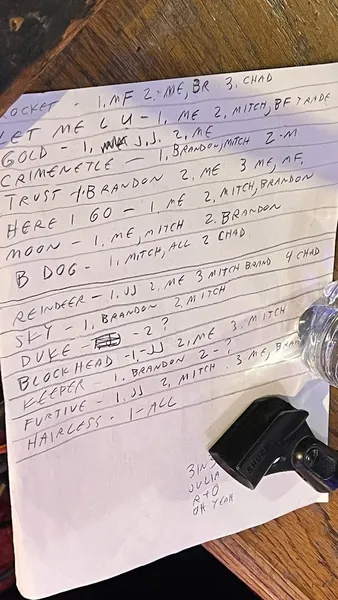 OCKET - 1. MF 2. ME, BR 3. CHAD
ET ME C U - 1, ME 2, MITCH, BF TRADE
GOLD - 1, J.J. 2, ME
CRIMENETLE - 1, BRANDON, MITCH 2 - M
TRUST + BRANDON 2, ME 3 ME, MF,
HERE I GO - 1. ME 2, MITCH, BRANDON
MOON - 1. ME, MITCH 2. BRANDON
B DOG - 1, MITCH, ALL 2 CHAD
REINDEER - 1. JJ 2. ME 3 MITCH BRAND 4 CHAD
SKY - 1, BRANDON 2, MITCH
DUKE - 2 ?
BLOCKHEAD - 1, - JJ 2, ME 3. MITCH
KEEPER - 1. BRANDON 2 - ?
FURTIVE - 1. JJ 2, MITCH . 3 ME, BRAN
HAIRLESS - 1 - ALL
SHURE
3 IN
JULIA
R + O
OH YEAH